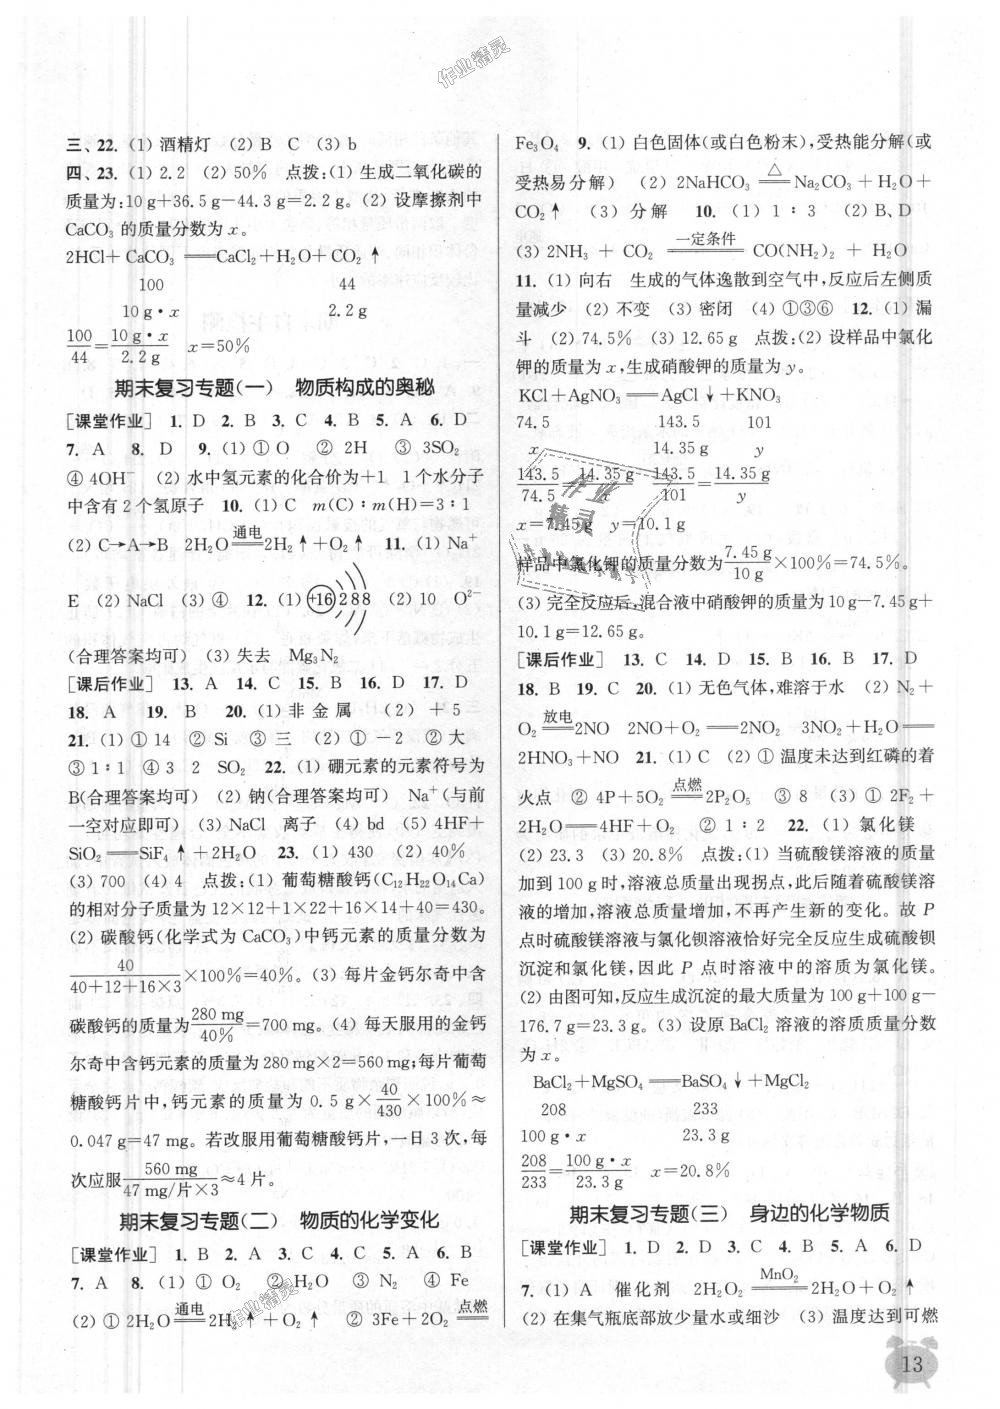 作业精灵
三、22. (1) 酒精灯 (2) B C (3) b
四、23. (1) 2.2 (2) 50% 点拨:(1) 生成二氧化碳的
质量为:10 g+36.5 g-44.3 g=2.2 g。(2) 设摩擦剂中
CaCO₃ 的质量分数为 x。
2HCl+CaCO₃══CaCl₂+H₂O+CO₂↑
100 44
10 g·x 2.2 g
100/44=10 g·x/2.2 g x=50%
期末复习专题(一) 物质构成的奥秘
[课堂作业] 1. D 2. B 3. C 4. B 5. A 6. D
7. A 8. D 9. (1) ① O ② 2H ③ 3SO₂
④ 4OH⁻ (2) 水中氢元素的化合价为+1 1个水分子
中含有2个氢原子 10. (1) C m(C)∶m(H)=3∶1
(2) C→A→B 2H₂O══(通电)2H₂↑+O₂↑ 11. (1) Na⁺
E (2) NaCl (3) ④ 12. (1) +16 2 8 8 (2) 10 O²⁻
(合理答案均可) (3) 失去 Mg₃N₂
[课后作业] 13. A 14. C 15. B 16. D 17. D
18. A 19. B 20. (1) 非金属 (2) +5
21. (1) ① 14 ② Si ③ 三 (2) ① -2 ② 大
③ 1∶1 ④ 3 2 SO₂ 22. (1) 硼元素的元素符号为
B(合理答案均可) (2) 钠(合理答案均可) Na⁺(与前
一空对应即可) (3) NaCl 离子 (4) bd (5) 4HF+
SiO₂══SiF₄↑+2H₂O 23. (1) 430 (2) 40%
(3) 700 (4) 4 点拨:(1) 葡萄糖酸钙(C₁₂H₂₂O₁₄Ca)
的相对分子质量为12×12+1×22+16×14+40=430。
(2) 碳酸钙(化学式为CaCO₃)中钙元素的质量分数为
40/(40+12+16×3)×100%=40%。(3) 每片金钙尔奇中含
碳酸钙的质量为280 mg/40%=700 mg。(4) 每天服用的金钙
尔奇中含钙元素的质量为280 mg×2=560 mg;每片葡萄
糖酸钙片中,钙元素的质量为0.5 g×40/430×100%≈
0.047 g=47 mg。若改服用葡萄糖酸钙片,一日3次,每
次应服560 mg/(47 mg/片×3)≈4片。
期末复习专题(二) 物质的化学变化
[课堂作业] 1. B 2. A 3. C 4. C 5. A 6. B
7. A 8. (1) ① O₂ ② H₂O ③ N₂ ④ Fe
(2) ① 2H₂O══(通电)2H₂↑+O₂↑ ② 3Fe+2O₂══(点燃)
Fe₃O₄ 9. (1) 白色固体(或白色粉末),受热能分解(或
受热易分解) (2) 2NaHCO₃══(△)Na₂CO₃+H₂O+
CO₂↑ (3) 分解 10. (1) 1∶3 (2) B、D
(3) 2NH₃+CO₂══(一定条件)CO(NH₂)₂+H₂O
11. (1) 向右 生成的气体逸散到空气中,反应后左侧质
量减少 (2) 不变 (3) 密闭 (4) ①③⑥ 12. (1) 漏
斗 (2) 74.5% (3) 12.65 g 点拨:(2) 设样品中氯化
钾的质量为x,生成硝酸钾的质量为y。
KCl+AgNO₃══AgCl↓+KNO₃
74.5 143.5 101
x 14.35 g y
143.5/74.5=14.35 g/x 143.5/101=14.35 g/y
x=7.45 g y=10.1 g
样品中氯化钾的质量分数为7.45 g/10 g×100%=74.5%。
(3) 完全反应后,混合液中硝酸钾的质量为10 g-7.45 g+
10.1 g=12.65 g。
[课后作业] 13. C 14. D 15. B 16. B 17. D
18. B 19. C 20. (1) 无色气体,难溶于水 (2) N₂+
O₂══(放电)2NO 2NO+O₂══2NO₂ 3NO₂+H₂O══
2HNO₃+NO 21. (1) C (2) ① 温度未达到红磷的着
火点 ② 4P+5O₂══(点燃)2P₂O₅ ③ 8 (3) ① 2F₂+
2H₂O══4HF+O₂ ② 1∶2 22. (1) 氯化镁
(2) 23.3 (3) 20.8% 点拨:(1) 当硫酸镁溶液的质量
加到100 g时,溶液总质量出现拐点,此后随着硫酸镁溶
液的增加,溶液总质量增加,不再产生新的变化。故P
点时硫酸镁溶液与氯化钡溶液恰好完全反应生成硫酸钡
沉淀和氯化镁,因此P点时溶液中的溶质为氯化镁。
(2) 由图可知,反应生成沉淀的最大质量为100 g+100 g-
176.7 g=23.3 g。(3) 设原BaCl₂溶液的溶质质量分数
为x。
BaCl₂+MgSO₄══BaSO₄↓+MgCl₂
208 233
100 g·x 23.3 g
208/233=100 g·x/23.3 g x=20.8%
期末复习专题(三) 身边的化学物质
[课堂作业] 1. D 2. D 3. C 4. B 5. A 6. D
7. (1) A 催化剂 2H₂O₂══(MnO₂)2H₂O+O₂↑
(2) 在集气瓶底部放少量水或细沙 (3) 温度达到可燃
13